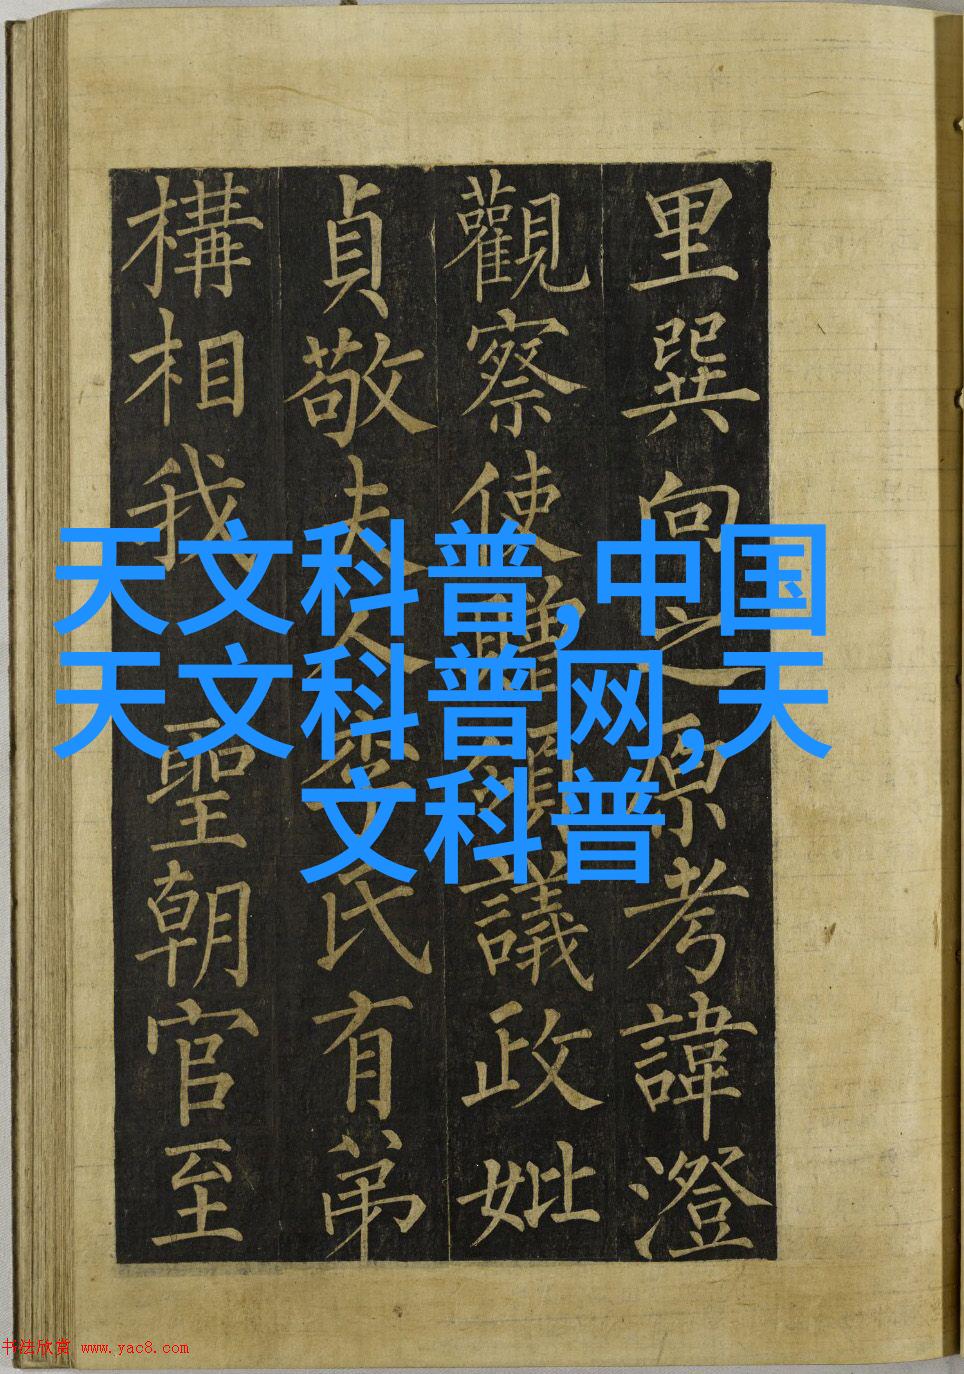 里巽向之原考諱澄
觀察使贈領議政妣
貞敬夫人李氏有弟
構相我 聖朝官至
天文科普,中国
天文科普网,天
文科普
书法欣赏 www.yac8.com